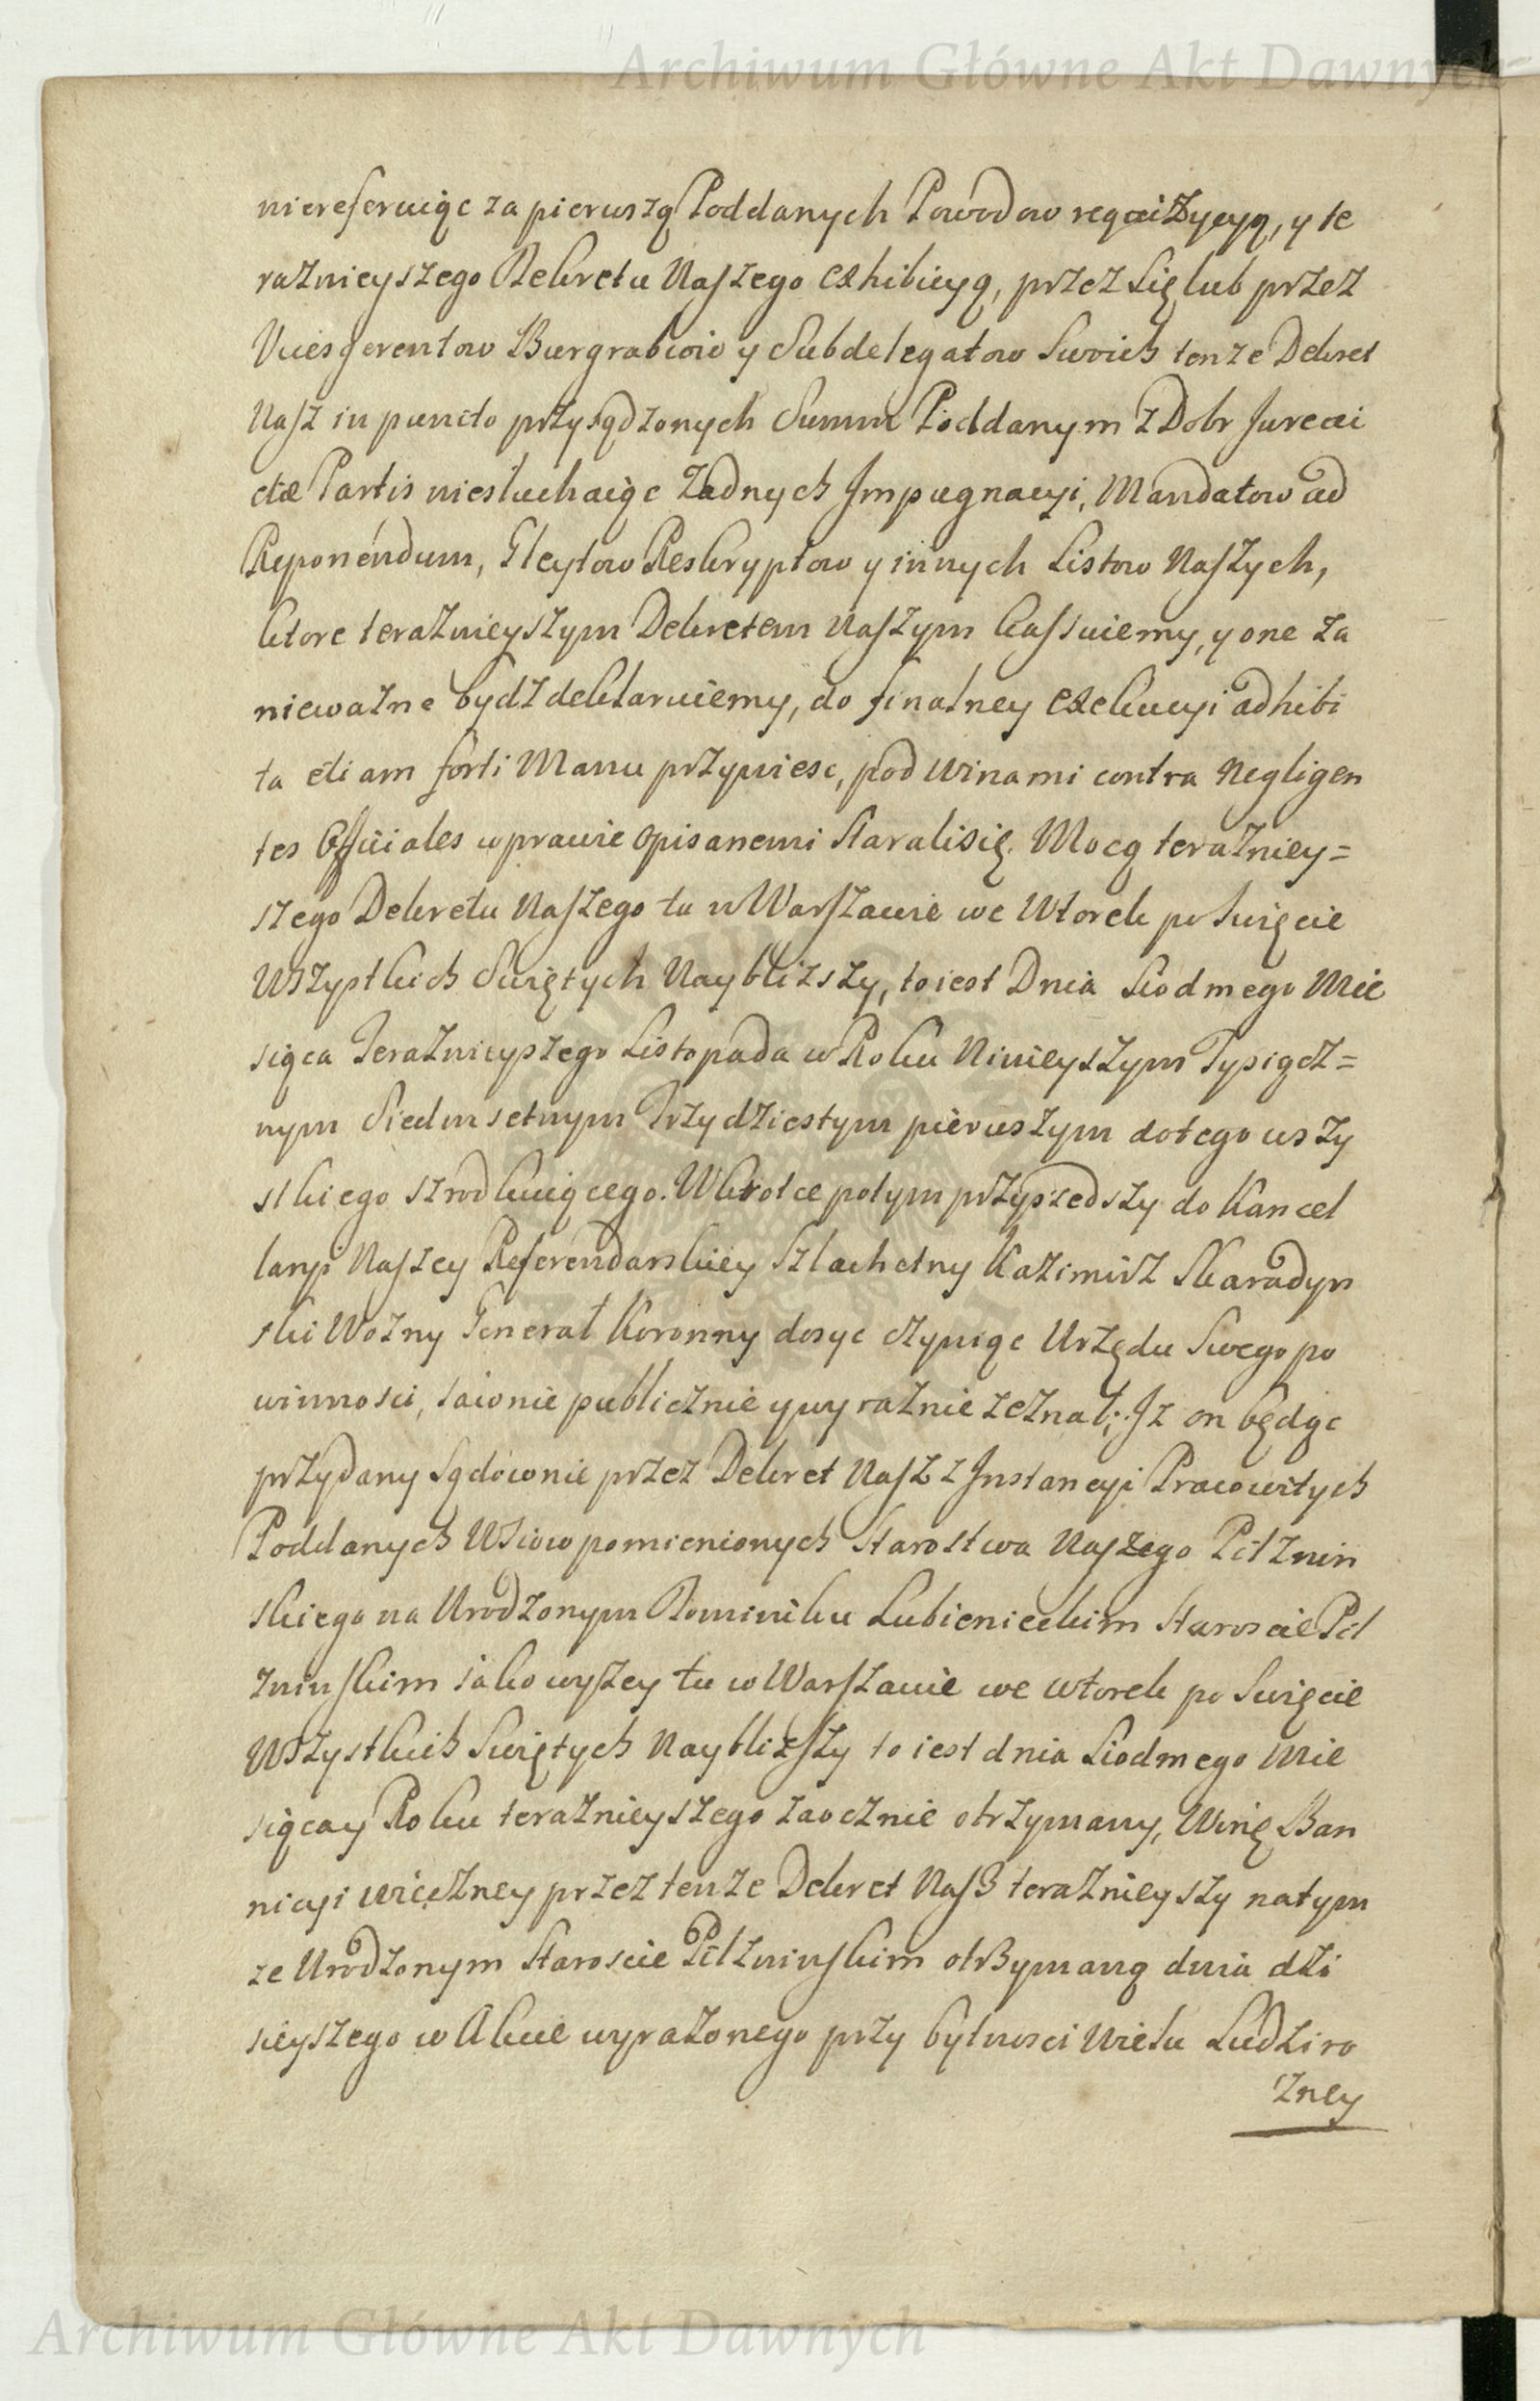 Archiwum Główne Akt Dawnych
niereferuiąc za pierwszą Poddanych Powodow reqwizycyą, y te
raznieyszego Dekretu Naszego exhibicyą, przez Się lub przez
Vicesgerentow Burgrabiow y Subdelegatow Swoich tenze Dekret
Nasz in puncto przysądzonych Summ Poddanym z Dobr Jurevi
ctæ Partis niesłuchaiąc Zadnych Impugnacyi, Mandatow ad
Reponendum, Gleytow Reskryptow y innych Listow Naszych,
ktore teraznieyszym Dekretem Naszym kassuiemy, y one za
niewazne bydz deklaruiemy, do finalney exekucyi adhibi
ta etiam forti Manu przywiesc, pod winami contra Negligen
tes Officiales w prawie opisanemi starali się. Mocą terazniey=
szego Dekretu Naszego tu w Warszawie we Wtorek po Swięcie
Wszystkich Swiętych Nayblizszy, to iest Dnia Siodmego Mie
siąca Teraznieyszego Listopada w Roku Ninieyszym Tysiącz=
nym Siedmsetnym Trzydziestym pierwszym do tego wszy
stkiego szrodkuiącego. Wkrotce potym przyszedszy do Kancel
laryi Naszey Referendarskiey Szlachetny Kazimirz Skaradyn
ski Wozny Generał Koronny dosyc czyniąc Urzędu Swego po
winnosci, iawnie publicznie y wyraznie zeznał; Iz on będąc
przydany Sądownie przez Dekret Nasz z Instancyi Pracowitych
Poddanych Wsiow pomienionych Starostwa Naszego Pilznin
skiego na Urodzonym Dominiku Lubienieckim Staroscie Pil
zninskim iako wyszey tu w Warszawie we wtorek po Swięcie
Wszystkich Swiętych Nayblizszy to iest dnia Siodmego Mie
siąca y Roku teraznieyszego zaocznie otrzymany, Winę Ban
nicyi wieczney przez tenze Dekret Nasz teraznieyszy na tym
ze Urodzonym Staroscie Pilzninskim otrzymaną dnia dzi
sieyszego w Akcie wyrazonego przy bytnosci Wielu Ludzi ro
zney
Archiwum Główne Akt Dawnych